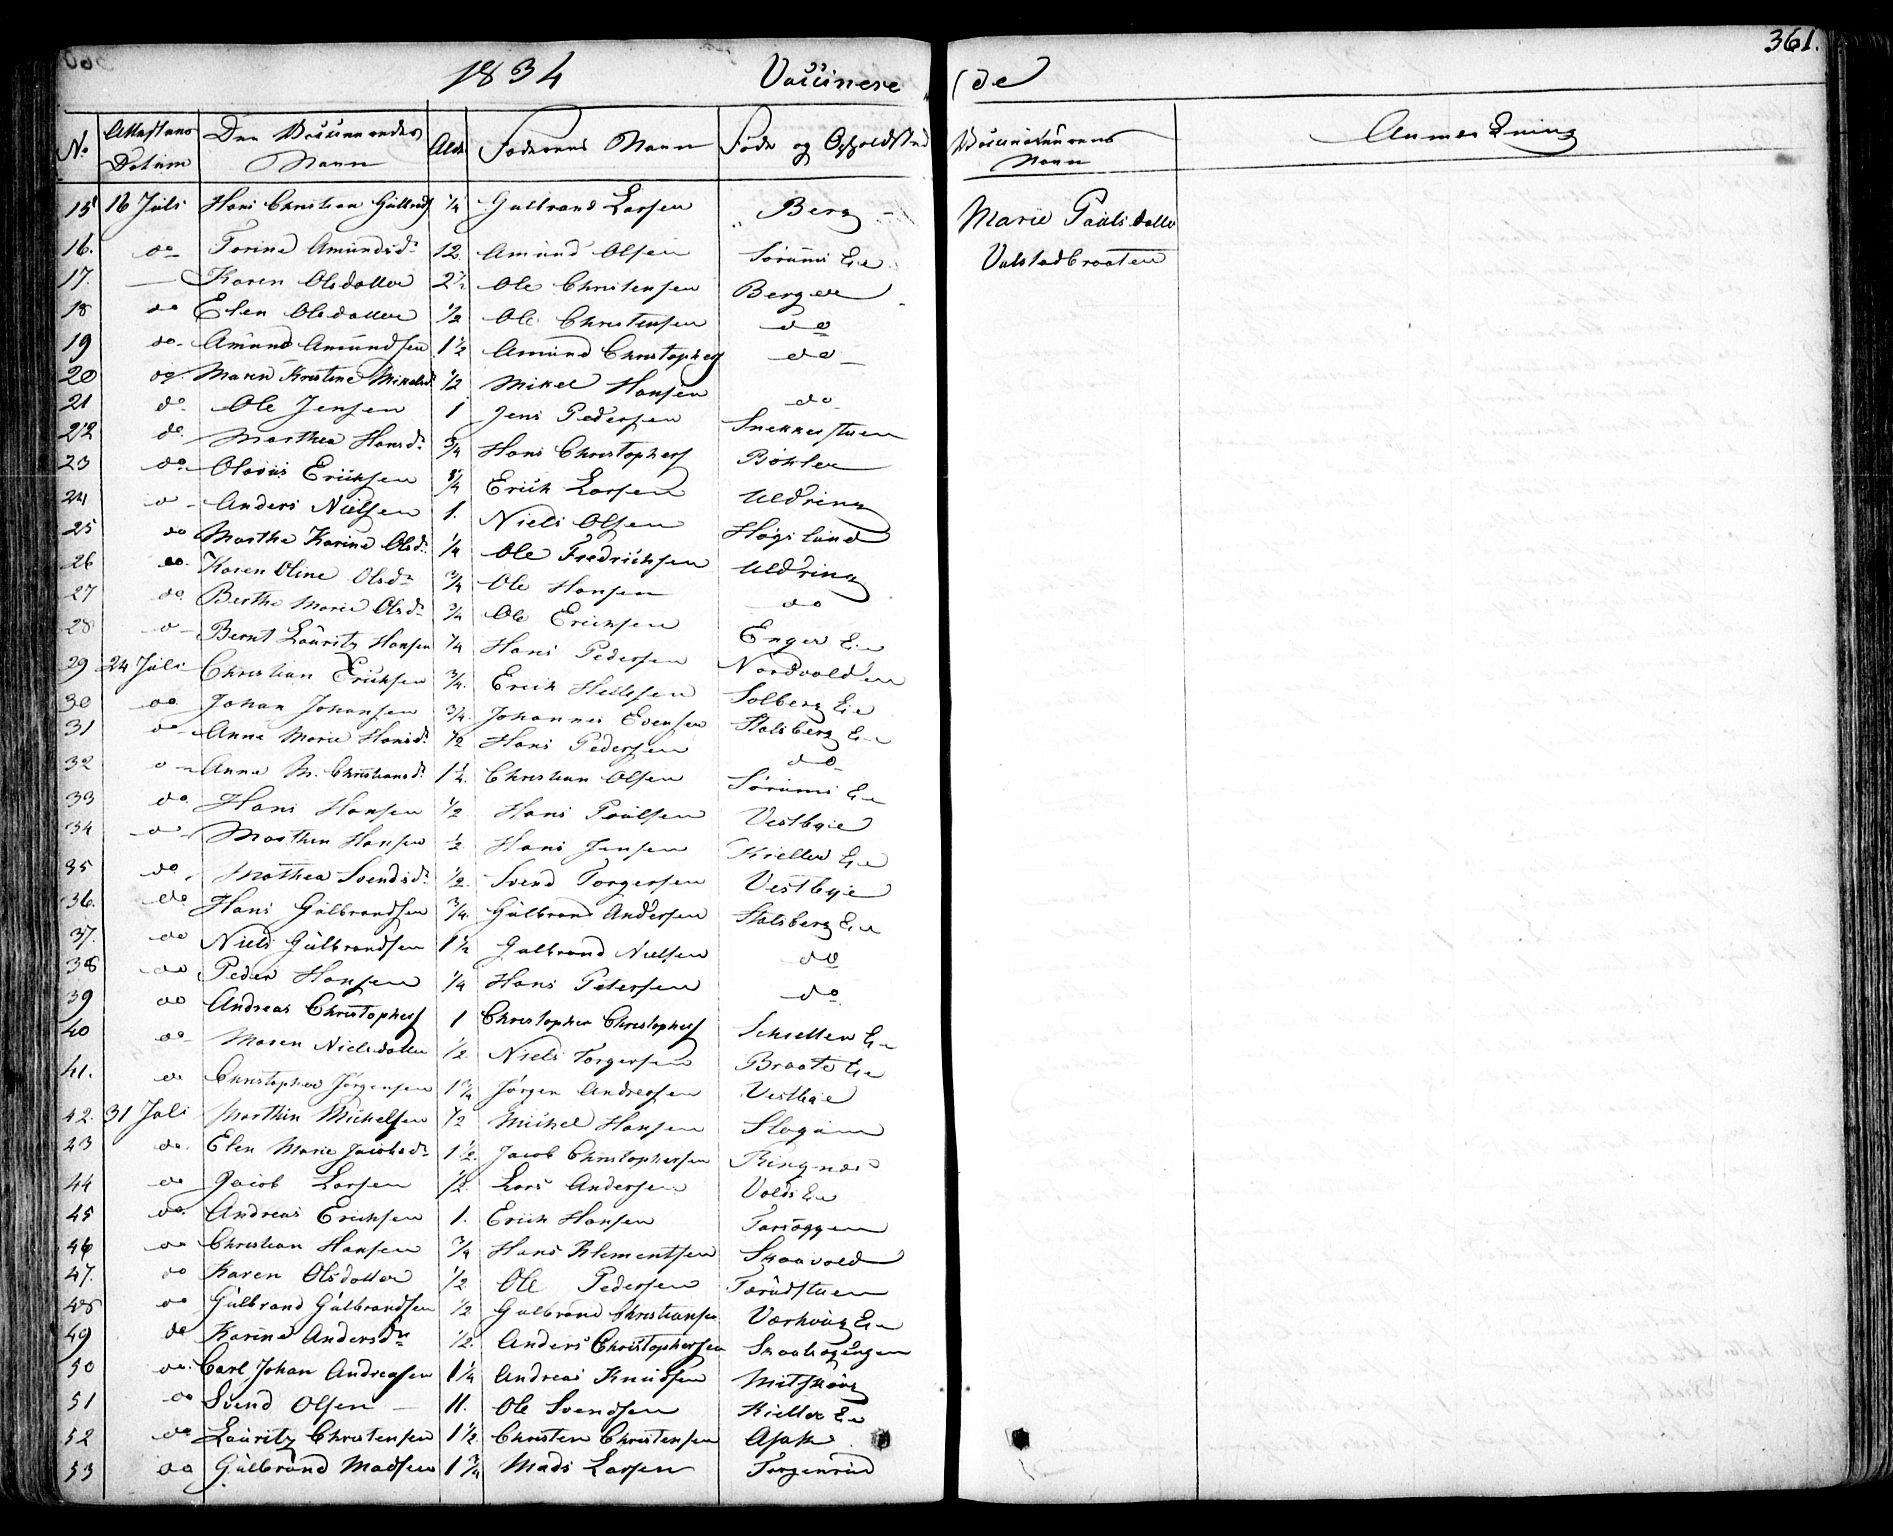 1834 Vaccinere de 361.
No Attestens Datum Den Vaccineredes Navn Ald. Faderens Navn Føde og Opholdsted Vaccinateurens Navn Anmærkning
15 16 Juli Hans Christian Gulbrands 1/4 Gulbrand Larsen Berg Marie Paulsdatter
16. do Torine Amundsdr 12. Amund Olsen Sørums Eie Valstadbraaten
17. — Karen Olsdatter 2 1/2 Ole Christensen Berger
18 do Elen Olsdatter 1/2 Ole Christensen do
19 do Amund Amundsen 1 1/2 Amund Christophers do
20 do Maren Kristine Mikelsd 1/2 Mikel Hansen do
21 do Ole Jensen 1 Jens Pedersen Snekkerstuen
22 do Marthea Hansdr 3/4 Hans Christophers Böhler
23 do Olavus Ericksen 3/4 Erick Larsen Uldring
24 do Anders Nielsen 1. Niels Olsen Høgslund
25 do Marthe Karine Olsdr 1/4 Ole Fredricksen Uldring
26 do Karen Oline Olsdr 3/4 Ole Hansen do
27 do Berthe Marie Olsdr 3/4 Ole Ericksen Enger Eie
28 do Bernt Lauritz Hansen 1/4 Hans Pedersen Nordvolden
29 24 Juli Christian Ericksen 3/4. Erick Hellesen Solberg Eie
30 do Johan Johansen 3/4. Johannes Evensen Stalsberg Eie
31 do Anne Marie Hansdr 1/2 Hans Pedersen do
32 do Anne M. Christiansdr 1 1/2. Christian Olsen Sørums Eie
33 do Hans Hansen 1/2 Hans Paulsen Vestbyie
34 do Marthin Hansen 1/2 Hans Jensen Kieller Eie
35 do Mathea Svendsdr 1/2. Svend Torgersen Vestbyie
36. do Hans Gulbrandsen 3/4. Gulbrand Andersen Stalsberg Eie
37. do Niels Gulbrandsen 1 1/2 Gulbrand Nielsen do
38 do Peder Hansen 1/4 Hans Petersen do
39 do Andreas Christophers 1 Christopher Christophers Schieller Eie
40 do Maren Nielsdatter 1/2 Niels Torgersen Braate Eie
41. do Christopher Jørgensen 1 3/4 Jørgen Andersen Vestbyie
42. 31 Juli Marthin Mickelsen 1/2 Mickel Hansen Slogum
43 do Elen Marie Jacobsdr 1 1/2. Jacob Christophersen Ringnæs
44 do Jacob Larsen 1/2. Lars Andersen Volds Eie
45 do Andreas Ericksen 1. Erick Hansen
46 do Christian Hansen 3/4 Hans Klementsen Skaavold
47. do Karen Olsdatter 1/2 Ole Pedersen
48 do Gulbrand Gulbrandsen 1/2 Gulbrand Christiansen Eie
49 do Karine Andersdr 1/2. Anders Christophersen
50 do Carl Johan Andreasen 1 1/4 Andreas Knudsen Mitskoug
51 do Svend Olsen 11. Ole Svendsen Kieller Eie
52 do Lauritz Christensen 1 1/2 Christen Christensen Asak
53 do Gulbrand Madsen 1 3/4 Mads Larsen Torgenrud